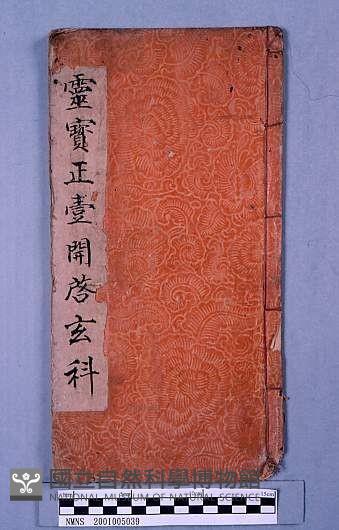 靈寶正壹開啓玄科
國立自然科學博物館
NATIONAL MUSEUM OF NATURAL SCIENCE
NMNS 2001005039